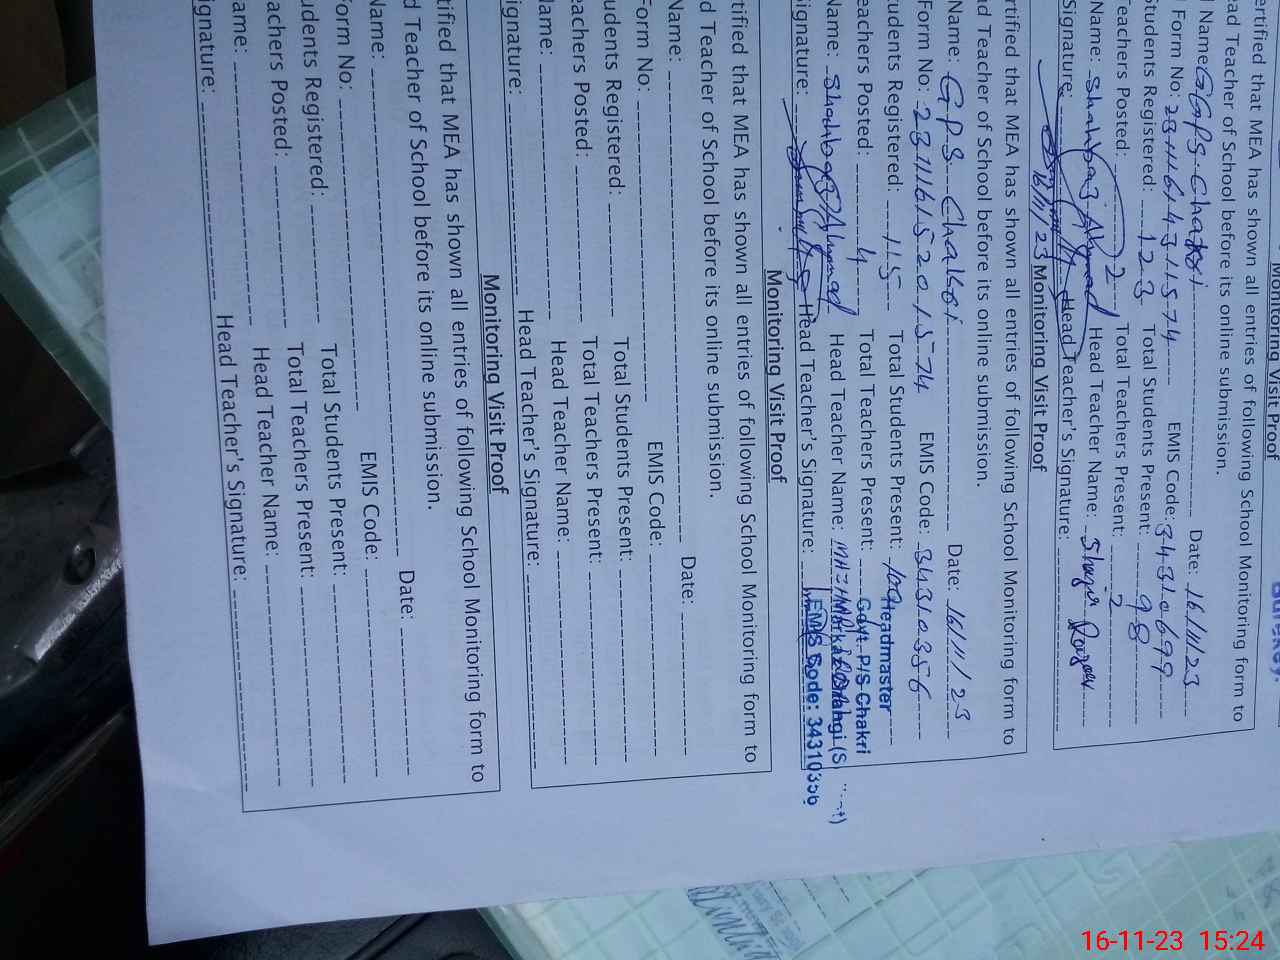 Monitoring Visit Proof
ertified that MEA has shown all entries of following School Monitoring form to
ead Teacher of School before its online submission.
Name: GGPS Chakri Date: 16/11/23
Form No: EMIS Code: 34310699
Students Registered: 123 Total Students Present: 98
Teachers Posted: 2 Total Teachers Present: 2
Name: Shahbaz Ahmad Head Teacher Name:
Signature: Head Teacher's Signature:
16/11/23
Monitoring Visit Proof
rtified that MEA has shown all entries of following School Monitoring form to
ad Teacher of School before its online submission.
Name: GPS Chakri Date: 16/11/23
Form No: 23111615201574 EMIS Code: 34310356
tudents Registered: 115 Total Students Present:
eachers Posted: 4 Total Teachers Present:
Name: Shahbaz Ahmad Head Teacher Name:
Signature: Head Teacher's Signature:
Headmaster
Govt. P/S Chakri
EMIS Code: 34310356
Monitoring Visit Proof
rtified that MEA has shown all entries of following School Monitoring form to
d Teacher of School before its online submission.
Name: Date:
Form No: EMIS Code:
udents Registered: Total Students Present:
eachers Posted: Total Teachers Present:
ame: Head Teacher Name:
ignature: Head Teacher's Signature:
Monitoring Visit Proof
tified that MEA has shown all entries of following School Monitoring form to
d Teacher of School before its online submission.
Name: Date:
orm No: EMIS Code:
udents Registered: Total Students Present:
achers Posted: Total Teachers Present:
ame: Head Teacher Name:
ignature: Head Teacher's Signature:
16-11-23 15:24